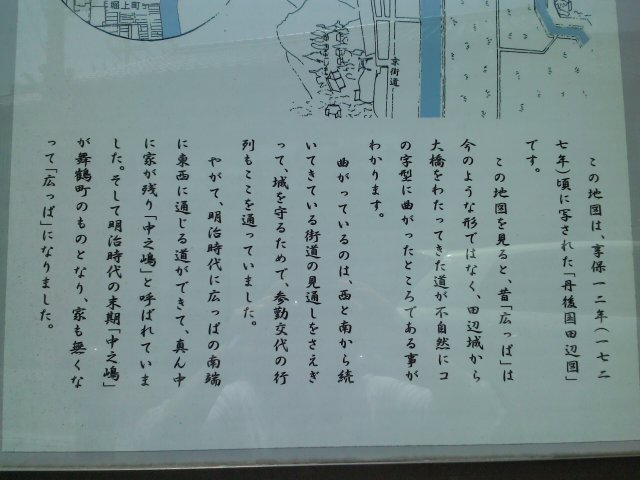 堀上町
京街道
この地図は、享保一二年(一七二
七年)頃に写された「丹後国田辺図」
です。
この地図を見ると、昔「広っぱ」は
今のような形ではなく、田辺城から
大橋をわたってきた道が不自然にコ
の字型に曲がったところである事が
わかります。
曲がっているのは、西と南から続
いてきている街道の見通しをさえぎ
って、城を守るためで、参勤交代の行
列もここを通っていました。
やがて、明治時代に広っぱの南端
に東西に通じる道ができて、真ん中
に家が残り「中之嶋」と呼ばれていま
した。そして明治時代の末期「中之嶋」
が舞鶴町のものとなり、家も無くな
って「広っぱ」になりました。